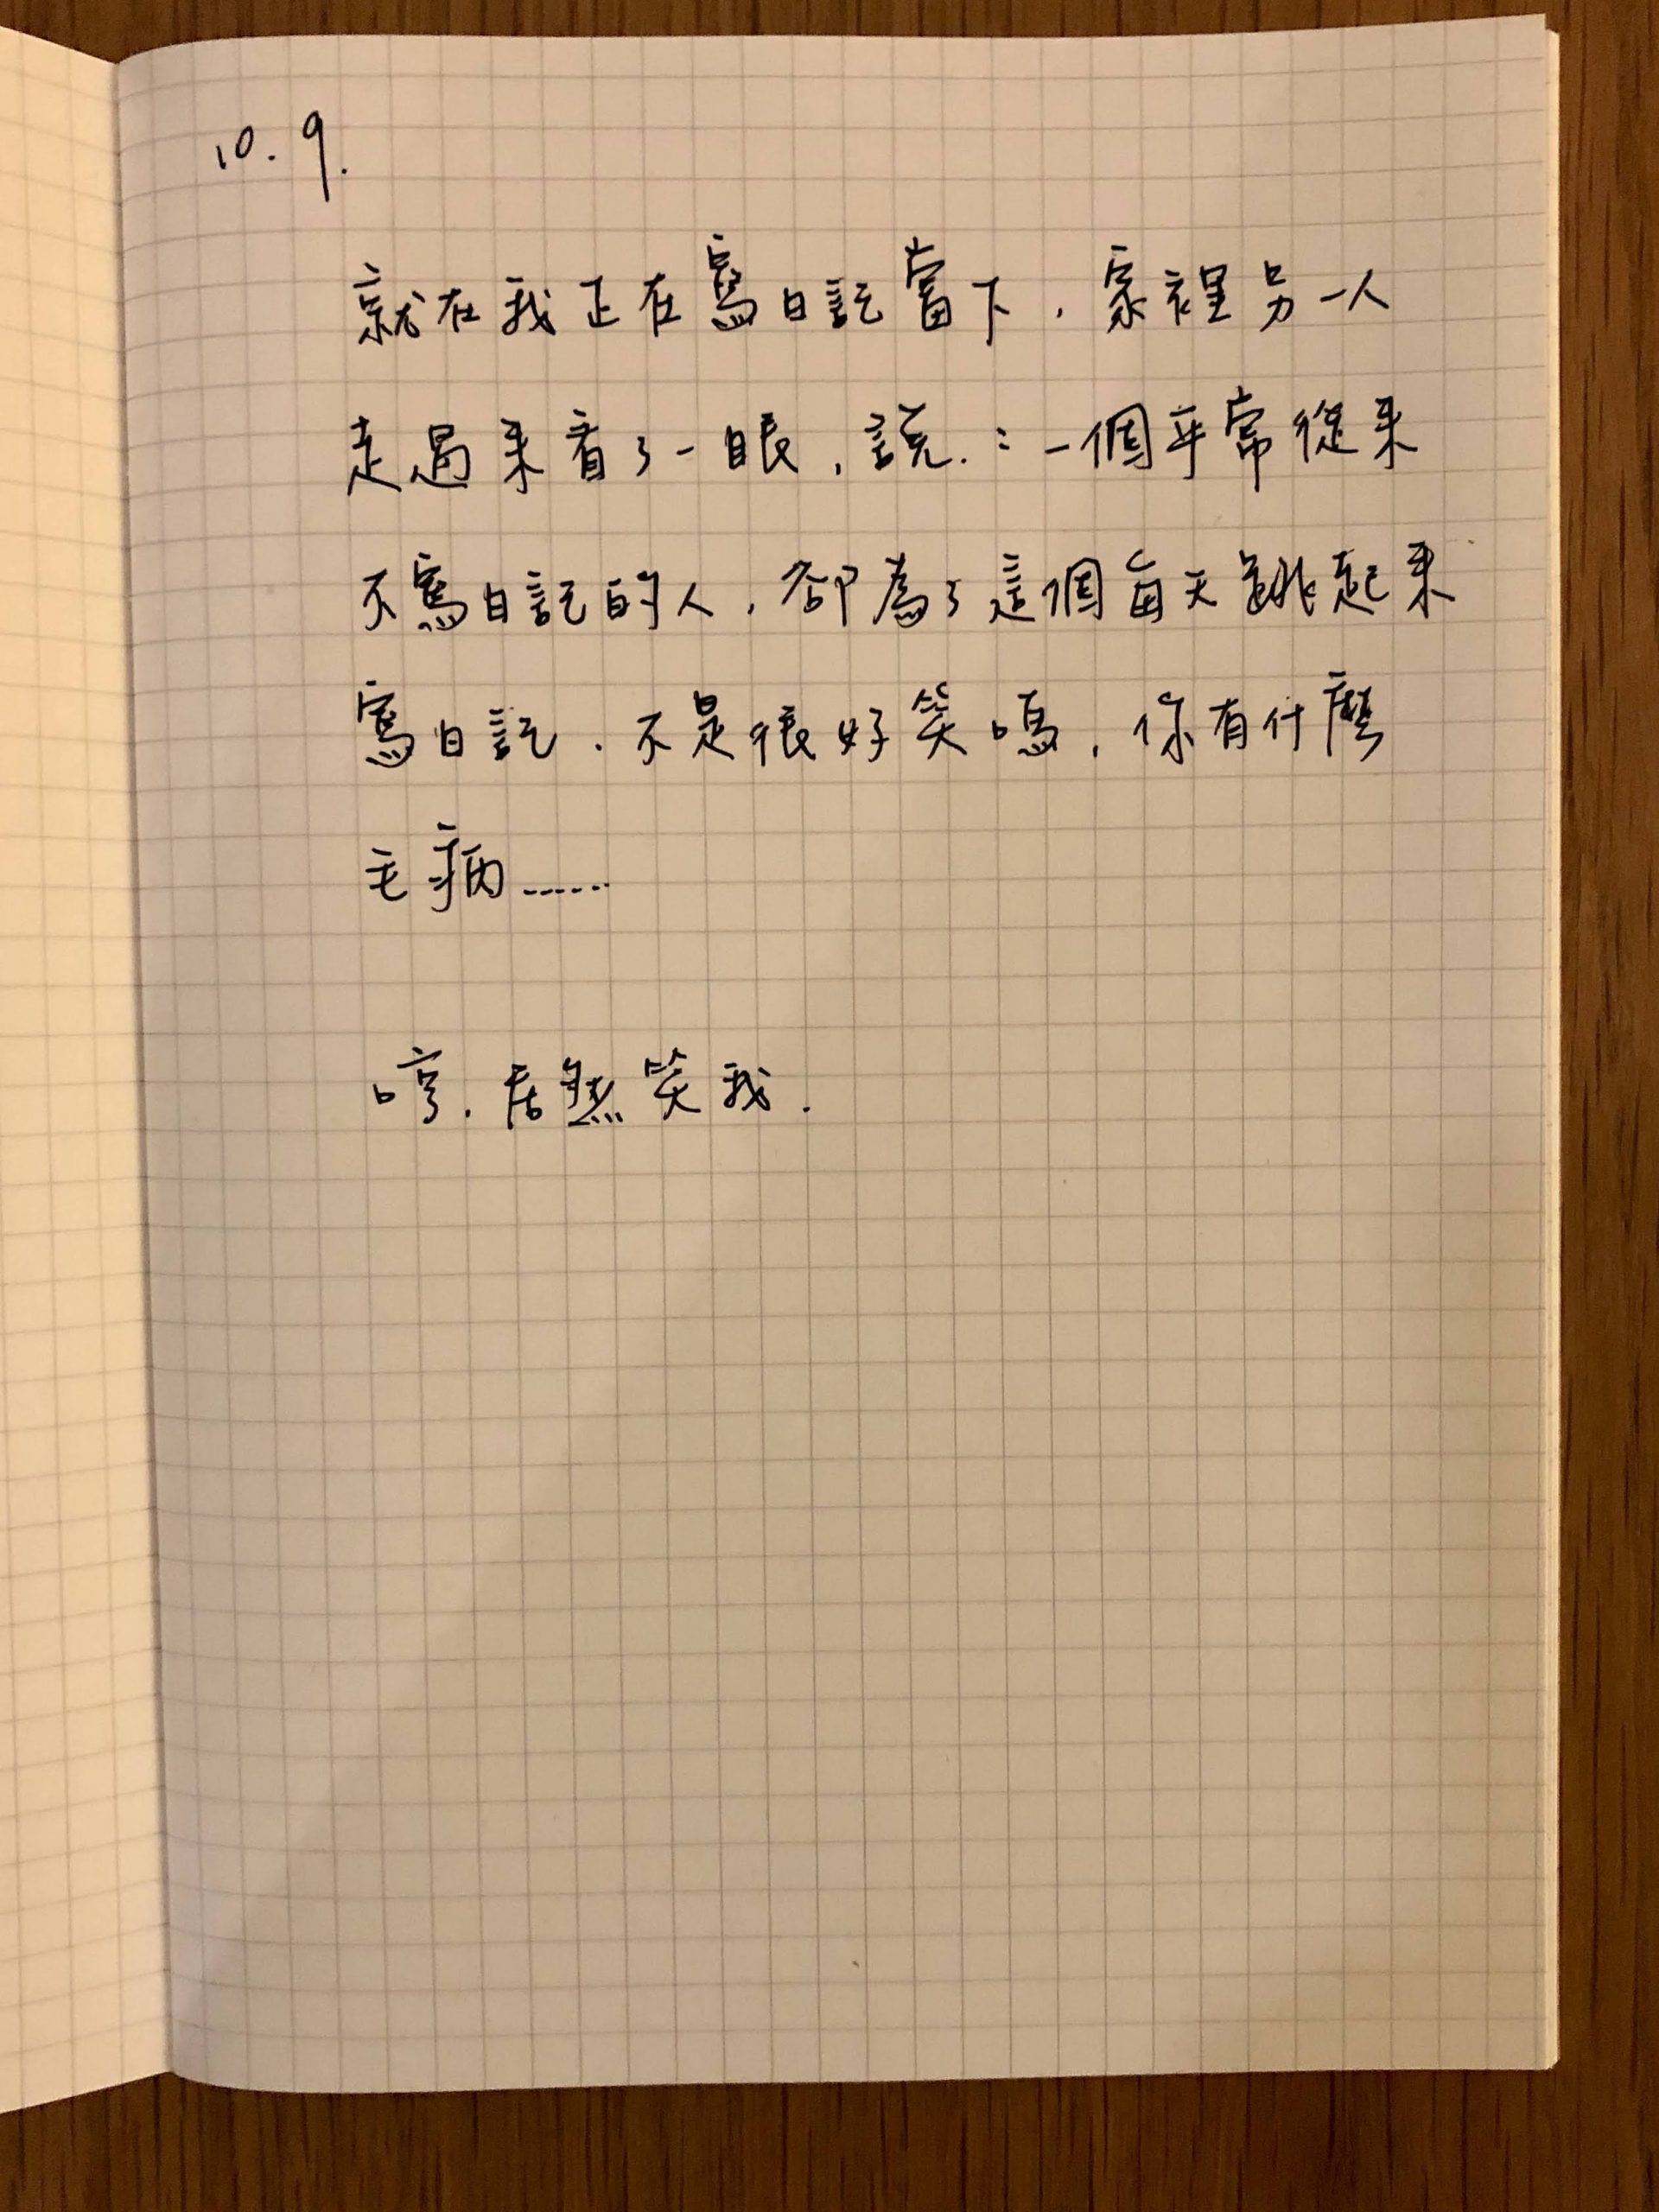 10.9.
就在我正在寫日記當下，家裡另一人
走過來看了一眼，說：一個平常從來
不寫日記的人，卻為了這個每天跳起來
寫日記，不是很好笑嗎，你有什麼
毛病……
哼，居然笑我．